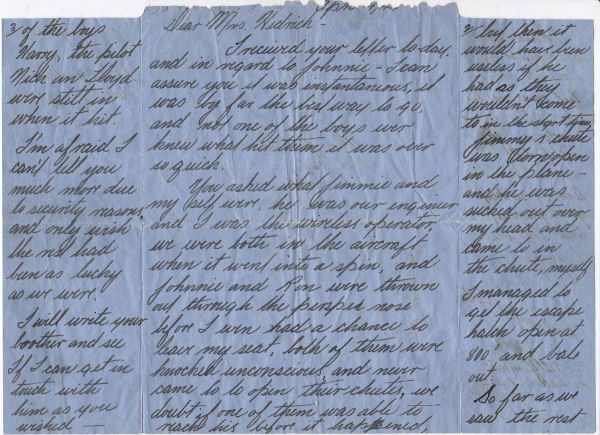 Dear Mrs.
I recieved your letter to-day.
and in regard to Johnnie - I can
assure you it was instantaneous, it
was by far the best way to go,
and not one of the boys ever
knew what hit them it was over
so quick.
You asked what Jimmie and
my self were. he was our engineer
and I was the wireless operator,
we were both in the aircraft
when it went into a spin, and
Johnnie and Ron were thrown
out through the perspex nose
before I even had a chance to
leave my seat, both of them were
knocked unconscious, and never
came to to open their chutes, we
doubt if one of them was able to
reach his before it happened,
2 but then it
would have been
useless if he
had as they
wouldn't come
to in the short time,
Jimmy's chute
was torn open
in the plane -
and he was
sucked out over
my head and
came to in
the chute, myself
I managed to
get the escape
hatch open at
800 and bale
out.
So far as we
saw the rest
3 of the boys
Harry, the pilot
Nick an Lloyd
were still in
when it hit.
I'm afraid I
can't tell you
much more due
to security reasons,
and only wish
the rest had
been as lucky
as we were.
I will write your
brother and see
If I can get in
touch with
him as you
wished -